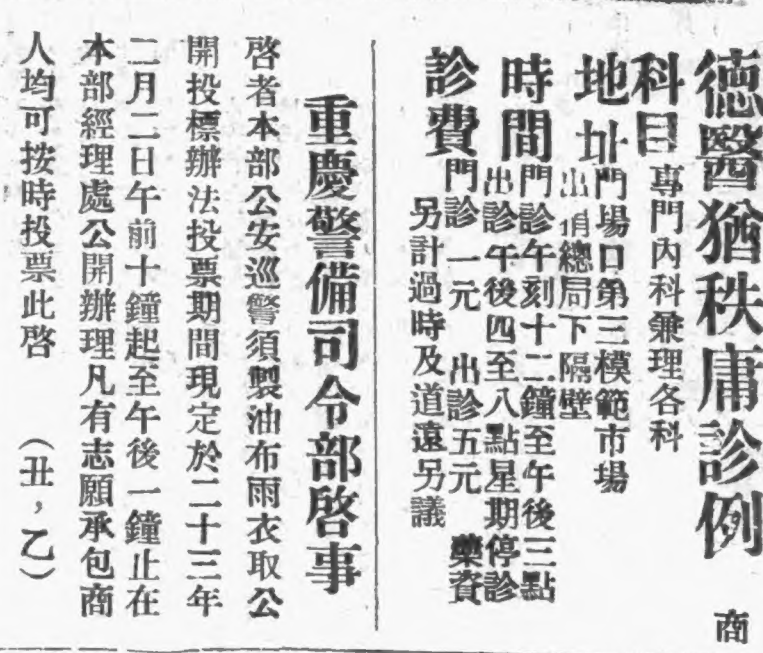 德醫猶秩庸診例 商
科目 專門內科兼理各科
地址 門場口第三模範市場
捐總局下隔壁
時間 門診午刻十二鐘至午後三點
出診午後四至八點星期停診
診費 門診一元 出診五元 藥資
另計過時及道遠另議
重慶警備司令部啓事
啓者本部公安巡警須製油布雨衣取公
開投標辦法投票期間現定於二十三年
二月二日午前十鐘起至午後一鐘止在
本部經理處公開辦理凡有志願承包商
人均可按時投票此啓 （丑，乙）